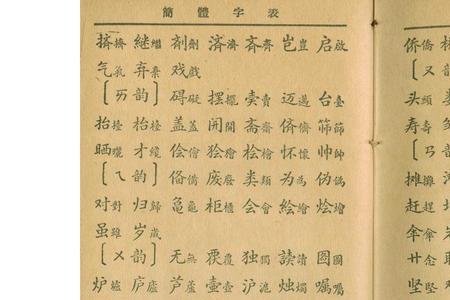 簡體字表
挤擠 継繼 剂劑 済濟 斉齊 岂豈 启啟
气氣 弃棄 戏戲
〔ㄞ韵〕 碍礙 摆擺 卖賣 迈邁 台臺
抬擡 枱檯 盖蓋 開 斋齋 侪儕 筛篩
晒曬 才纔 侩儈 桧檜 怀懷 帅帥
〔ㄟ韵〕 俻備 废廢 类類 为為 伪偽
对對 归歸 亀龜 柜櫃 会會 絵繪 烩燴
虽雖 岁歲
〔ㄨ韵〕 无無 覆 独獨 読讀 圖
炉爐 庐廬 芦蘆 壷壺 沪滬 烛燭 嘱囑
侨僑
〔ㄡ
头頭
寿壽
〔ㄢ
摊攤
赶趕
伞傘
廿念
坚堅